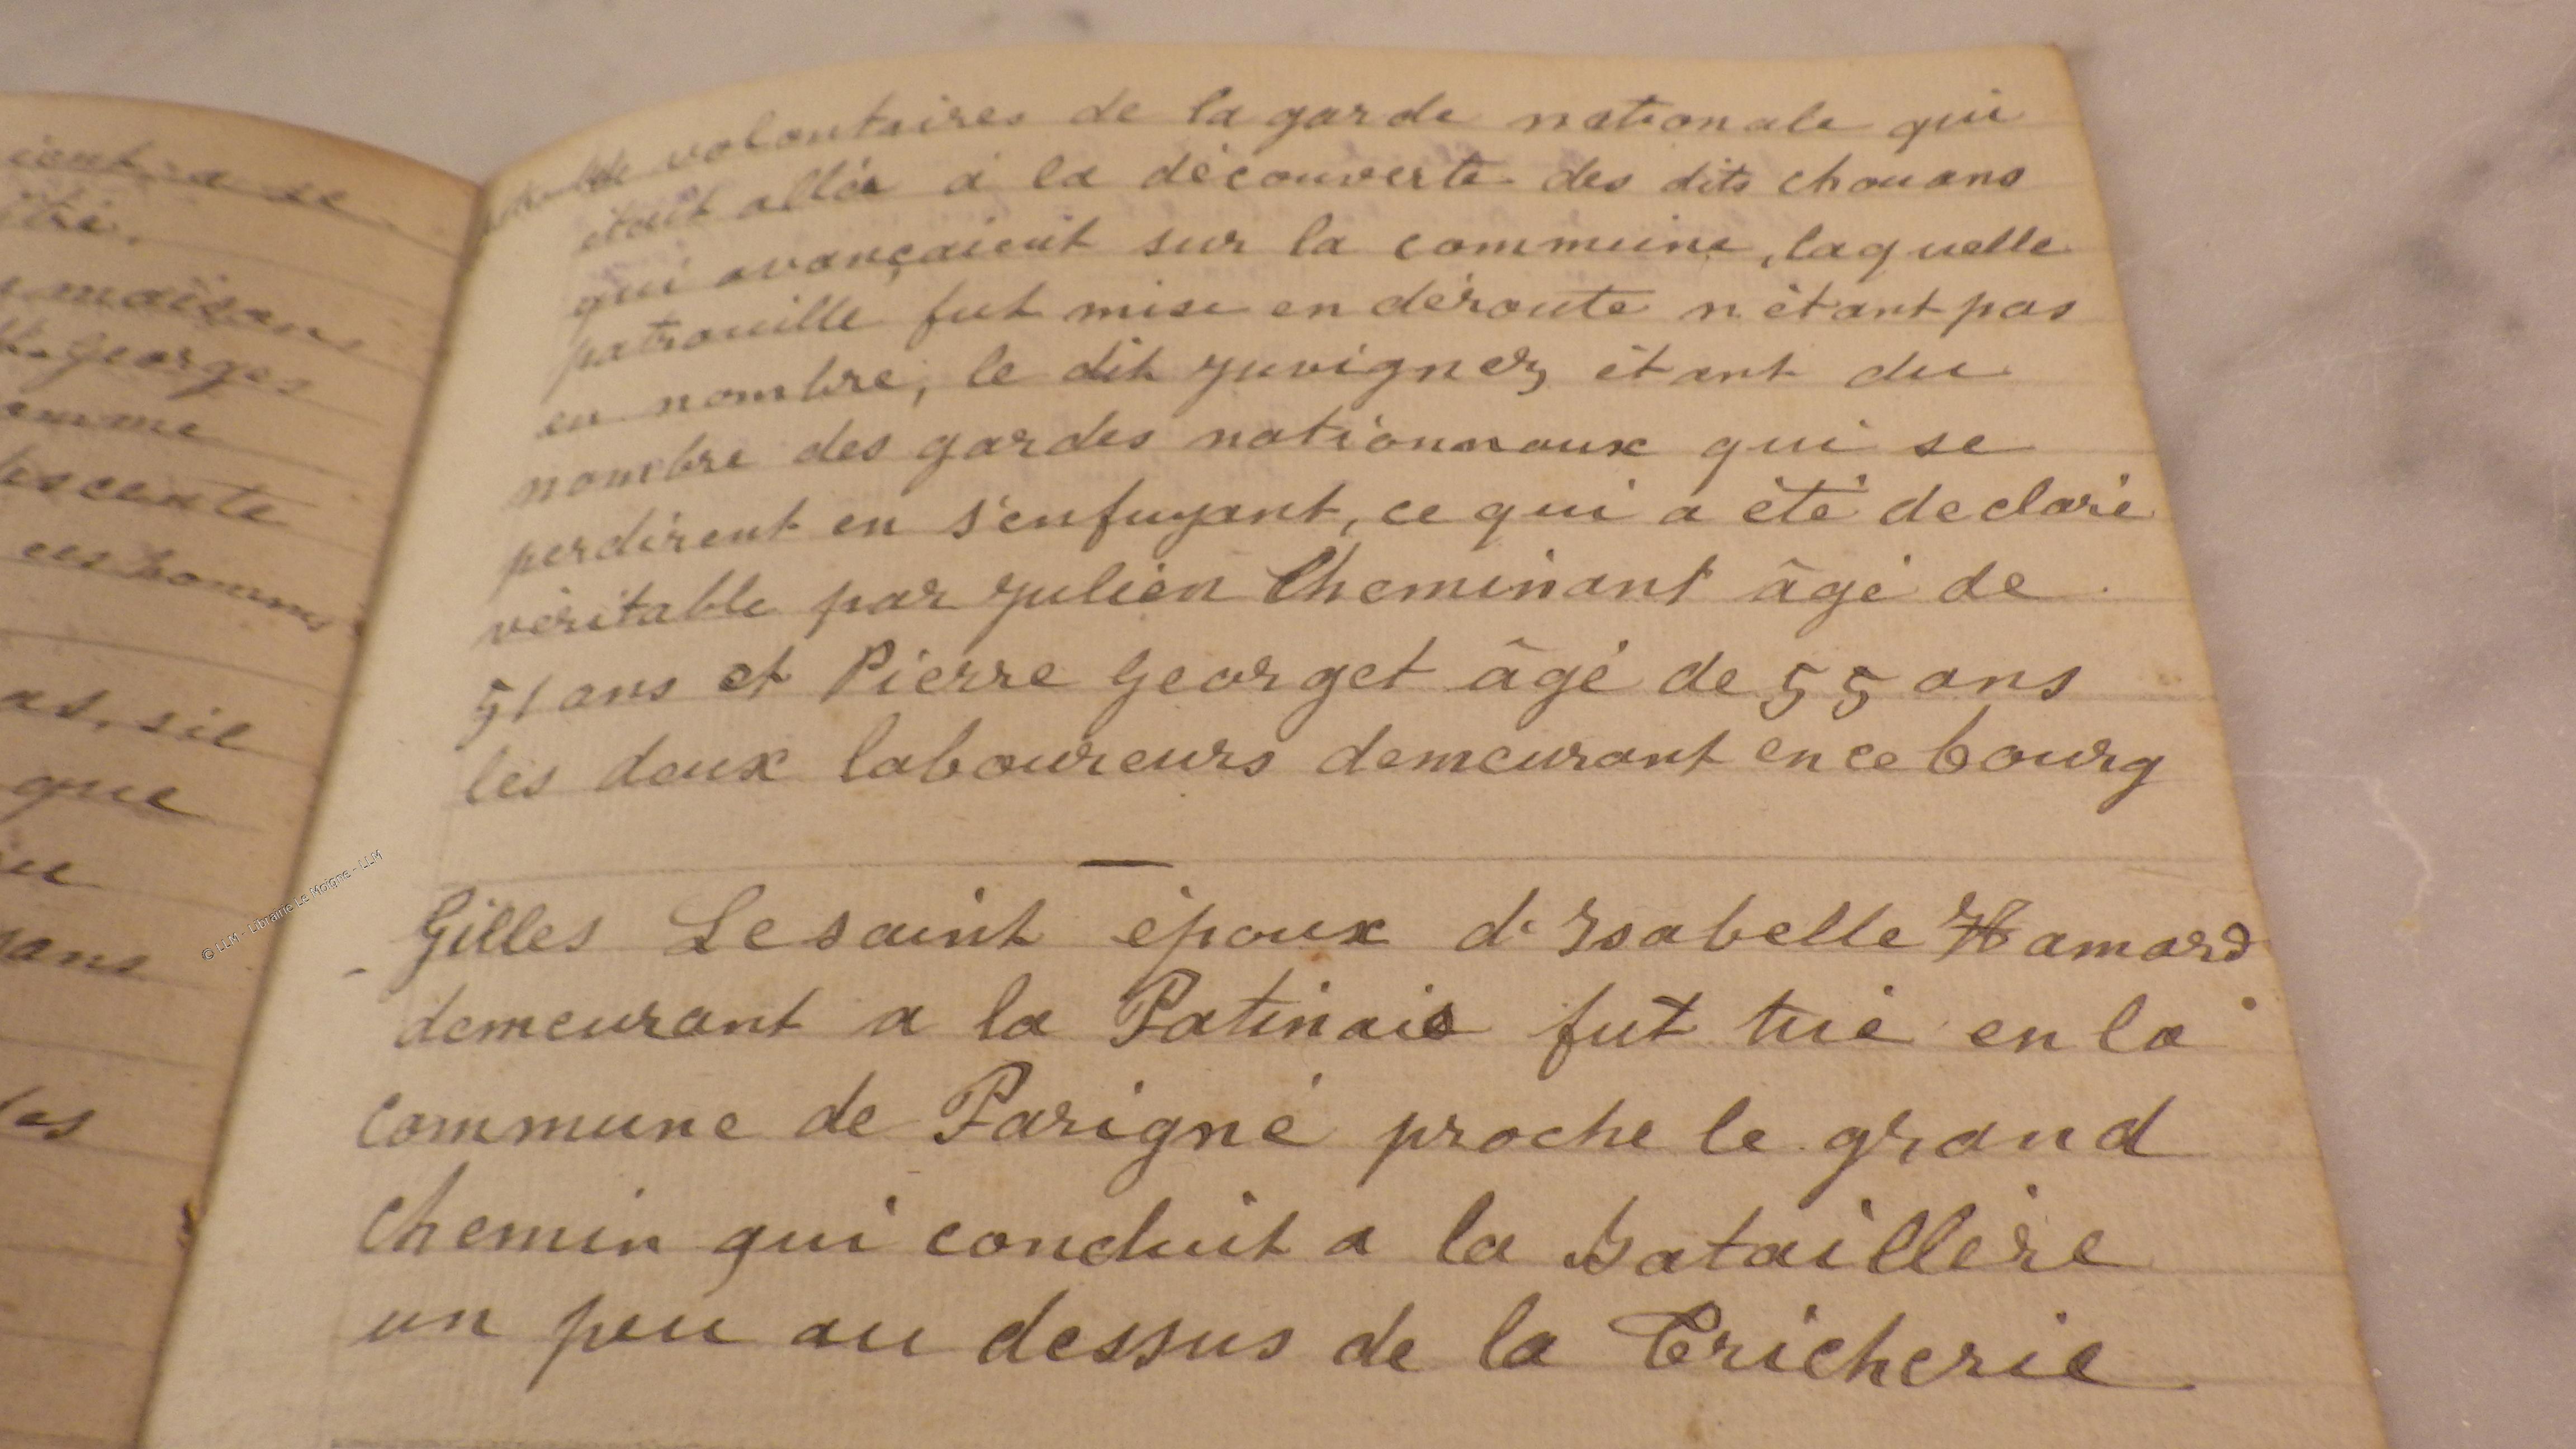 ient a se
maisons
St. Georges
descente
ces hommes
as, s'il
que
sans
les
de volontaires de la garde nationale qui
était allée a la découverte des dits chouans
qui avançaient sur la commune, laquelle
patrouille fut mise en déroute n'étant pas
en nombre, le dit Juvignez étant du
nombre des gardes nationnaux qui se
perdirent en s'enfuyant, ce qui a été declaré
véritable par Julien Cheminant âgé de
51 ans et Pierre Georget âgé de 55 ans
les deux laboureurs demeurant en ce bourg
Gilles Lesaint époux d'Isabelle Hamard
demeurant a la Patinais fut tué en la
commune de Parigné proche le grand
chemin qui conduit a la Bataillère
un peu au dessus de la Tricherie
© LLM - Librairie Le Moigne - LLM